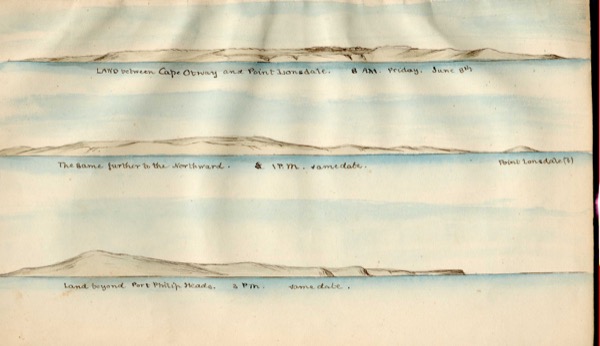 LAND between Cape Otway and Point Lonsdale. 8 AM. Friday, June 8th
The same further to the Northward. & 1 P.M. same date. Point Lonsdale (?)
Land beyond Port Philip Heads. 3 P.M. same date.